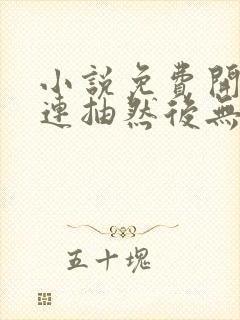 小說免費開
連抽然後無
五十塊